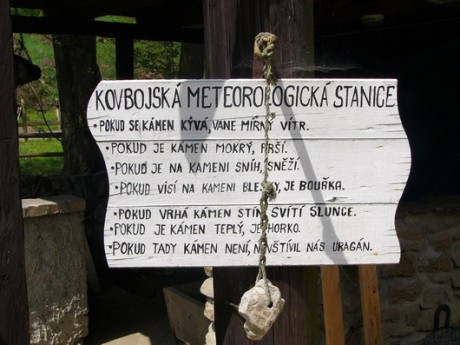 KOVBOJSKÁ METEOROLOGICKÁ STANICE
• POKUD SE KÁMEN KÝVÁ, VANE MÍRNÝ VÍTR.
• POKUD JE KÁMEN MOKRÝ, PRŠÍ.
• POKUD JE NA KAMENI SNÍH, SNĚŽÍ.
• POKUD VISÍ NA KAMENI BLESKY, JE BOUŘKA.
• POKUD VRHÁ KÁMEN STÍN, SVÍTÍ SLUNCE.
• POKUD JE KÁMEN TEPLÝ, JE HORKO.
• POKUD TADY KÁMEN NENÍ, NAVŠTÍVIL NÁS URAGÁN.